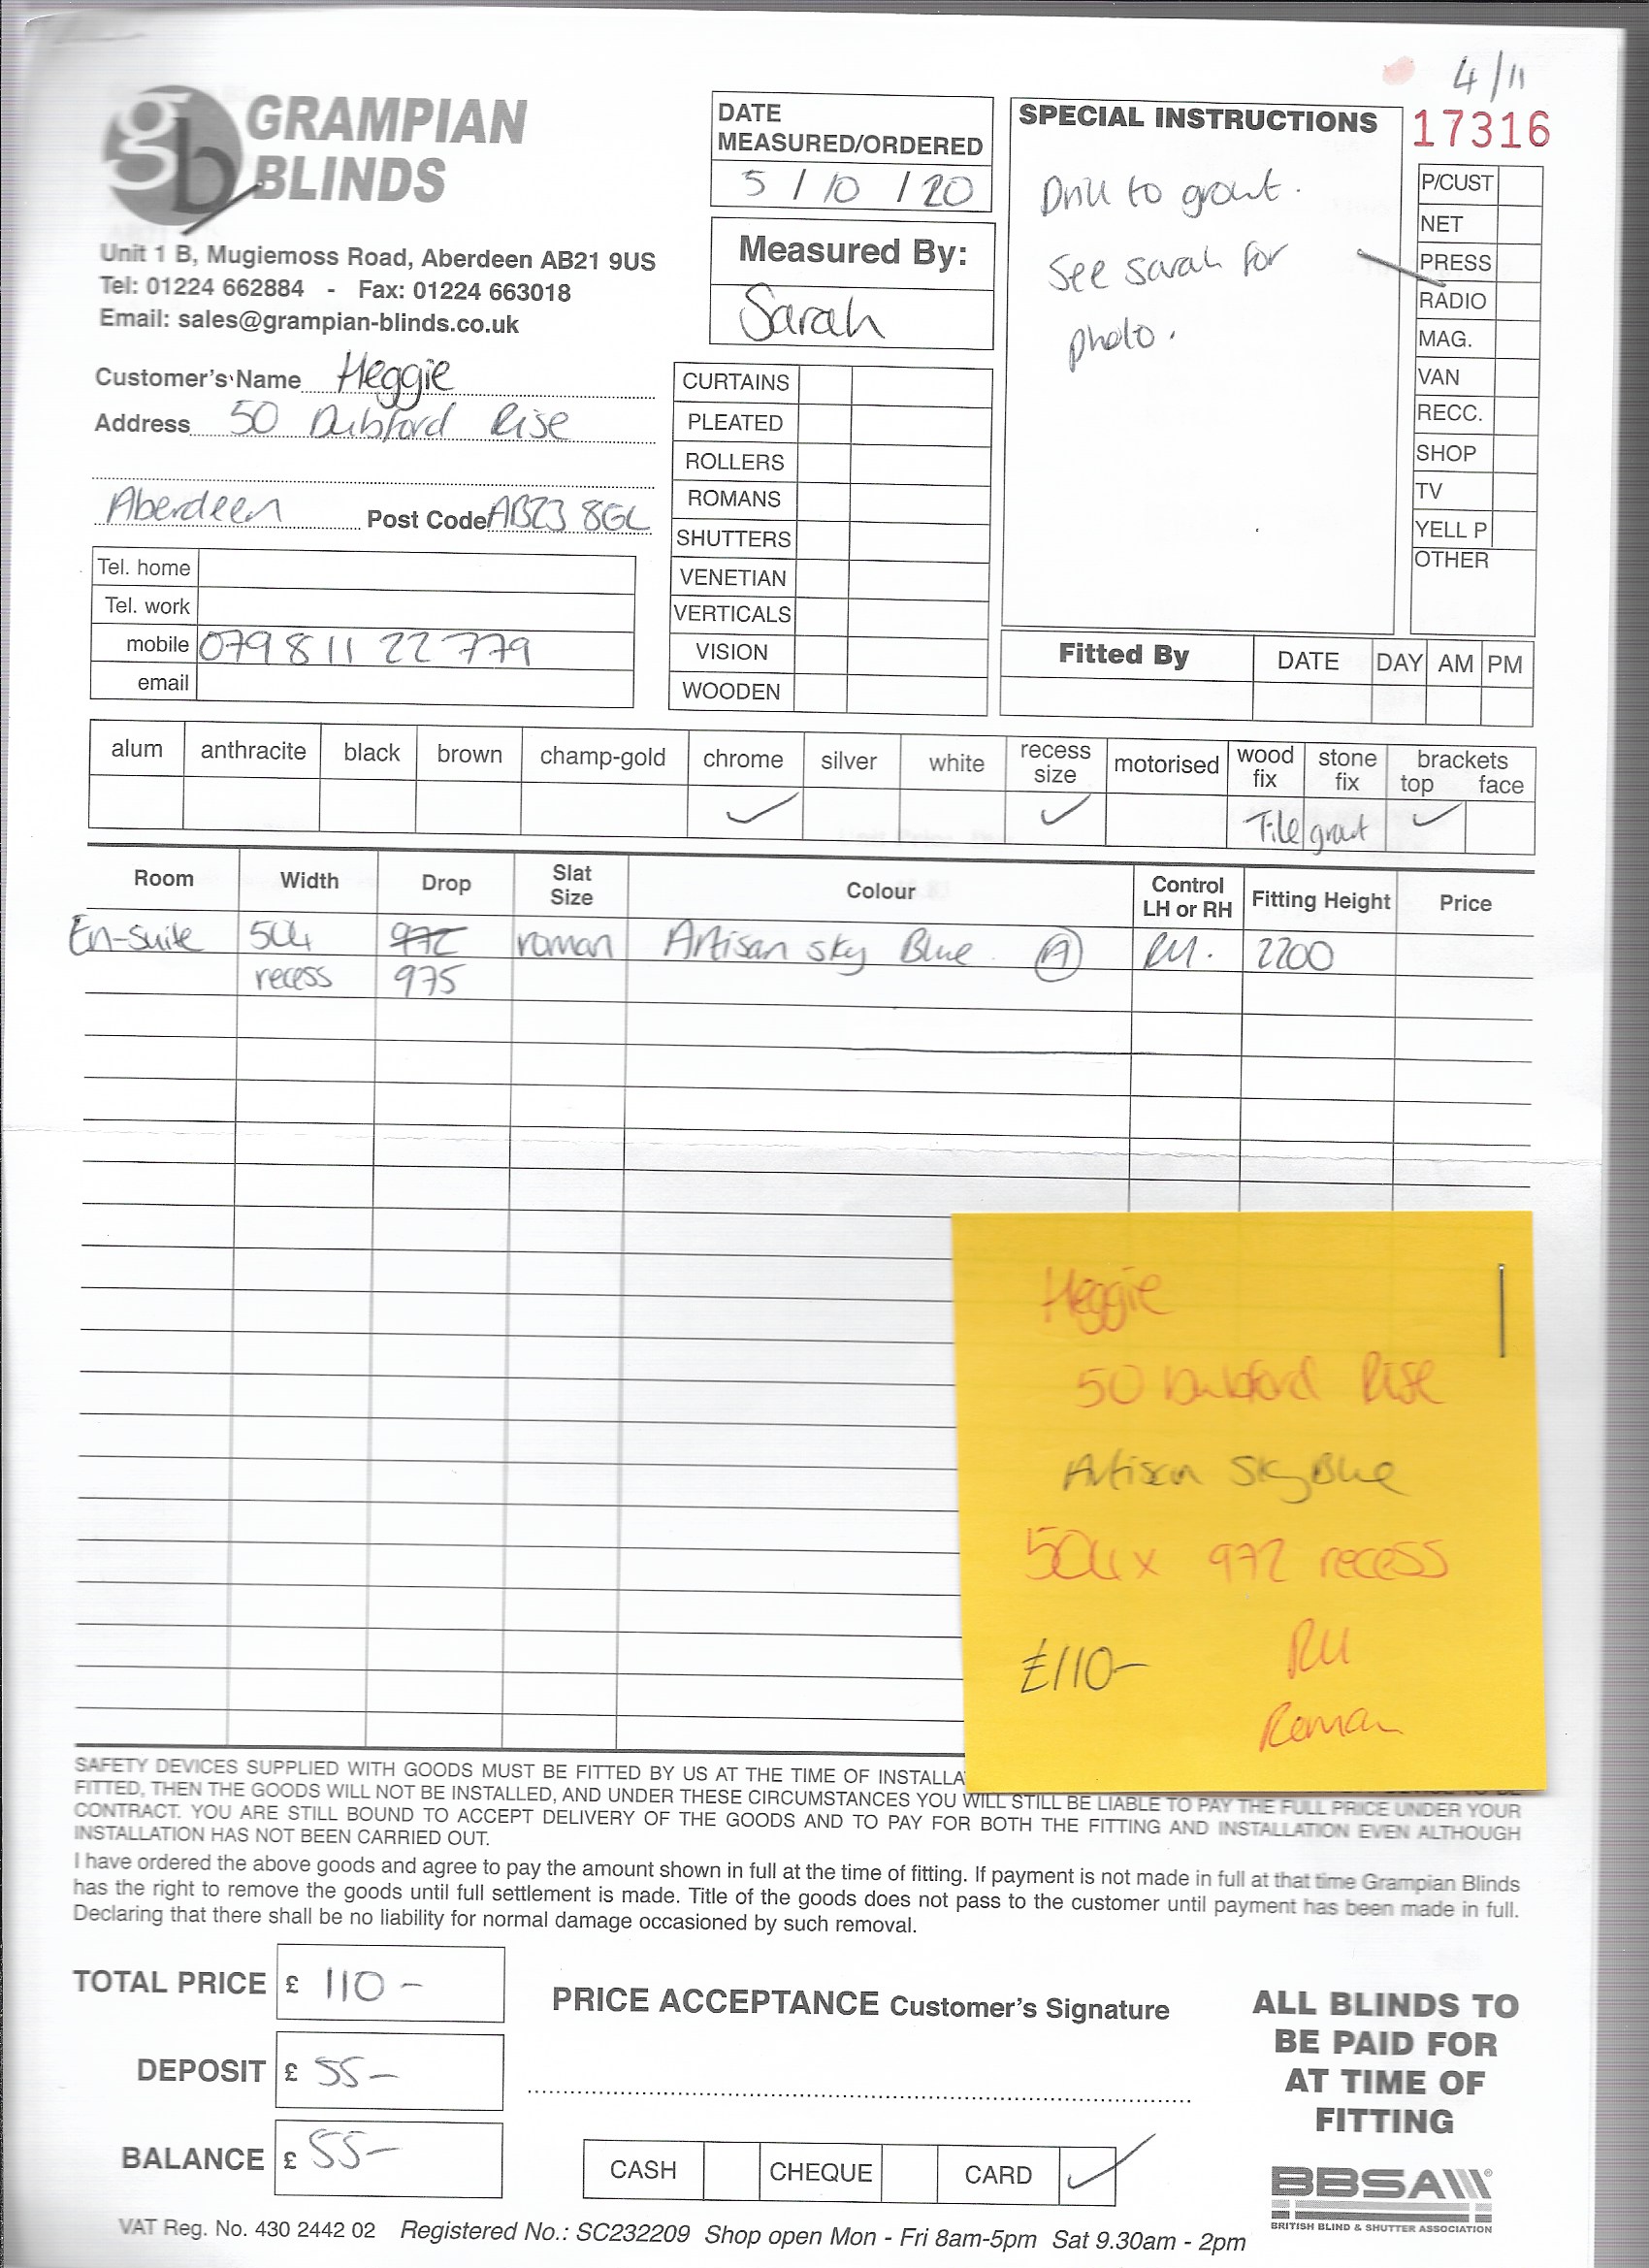 4/11
GRAMPIAN
BLINDS
gb
Unit 1 B, Mugiemoss Road, Aberdeen AB21 9US
Tel: 01224 662884 - Fax: 01224 663018
Email: sales@grampian-blinds.co.uk
Customer's Name Heggie
Address 50 Dubford Rise
Aberdeen Post Code AB23 8GL
Tel. home
Tel. work
mobile 079 811 22 779
email
DATE
MEASURED/ORDERED
5 / 10 / 20
Measured By:
Sarah
CURTAINS
PLEATED
ROLLERS
ROMANS
SHUTTERS
VENETIAN
VERTICALS
VISION
WOODEN
SPECIAL INSTRUCTIONS
Drill to grout.
See sarah for
photo.
17316
P/CUST
NET
PRESS
RADIO
MAG.
VAN
RECC.
SHOP
TV
YELL P
OTHER
Fitted By DATE DAY AM PM
alum anthracite black brown champ-gold chrome silver white recess size motorised wood fix stone fix brackets top face
✓ ✓ Tile grout ✓
Room Width Drop Slat Size Colour Control LH or RH Fitting Height Price
En-suite 504 972 roman Artisan sky Blue. A RH. 2200
recess 975
Heggie
50 Dubford Rise
Artisan Sky Blue
504 x 972 recess
£110- RH
Roman
SAFETY DEVICES SUPPLIED WITH GOODS MUST BE FITTED BY US AT THE TIME OF INSTALLA
FITTED, THEN THE GOODS WILL NOT BE INSTALLED, AND UNDER THESE CIRCUMSTANCES YOU WILL STILL BE LIABLE TO PAY THE FULL PRICE UNDER YOUR
CONTRACT. YOU ARE STILL BOUND TO ACCEPT DELIVERY OF THE GOODS AND TO PAY FOR BOTH THE FITTING AND INSTALLATION EVEN ALTHOUGH
INSTALLATION HAS NOT BEEN CARRIED OUT.
I have ordered the above goods and agree to pay the amount shown in full at the time of fitting. If payment is not made in full at that time Grampian Blinds
has the right to remove the goods until full settlement is made. Title of the goods does not pass to the customer until payment has been made in full.
Declaring that there shall be no liability for normal damage occasioned by such removal.
TOTAL PRICE £ 110 -
DEPOSIT £ 55 -
BALANCE £ 55 -
PRICE ACCEPTANCE Customer's Signature
CASH CHEQUE CARD ✓
ALL BLINDS TO
BE PAID FOR
AT TIME OF
FITTING
BBSA
BRITISH BLIND & SHUTTER ASSOCIATION
VAT Reg. No. 430 2442 02 Registered No.: SC232209 Shop open Mon - Fri 8am-5pm Sat 9.30am - 2pm